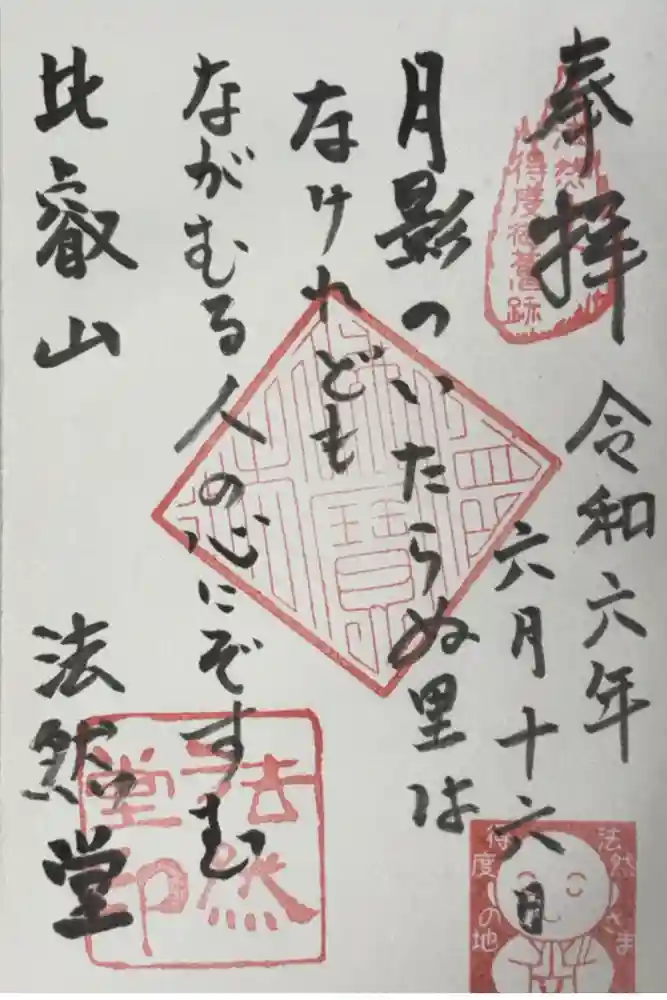 奉拝
令和六年
六月十六日
月影のいたらぬ里は
なけれども
ながむる人の心にぞすむ
比叡山
法然堂
得度御舊跡
法然堂印
法然さま
得度の地